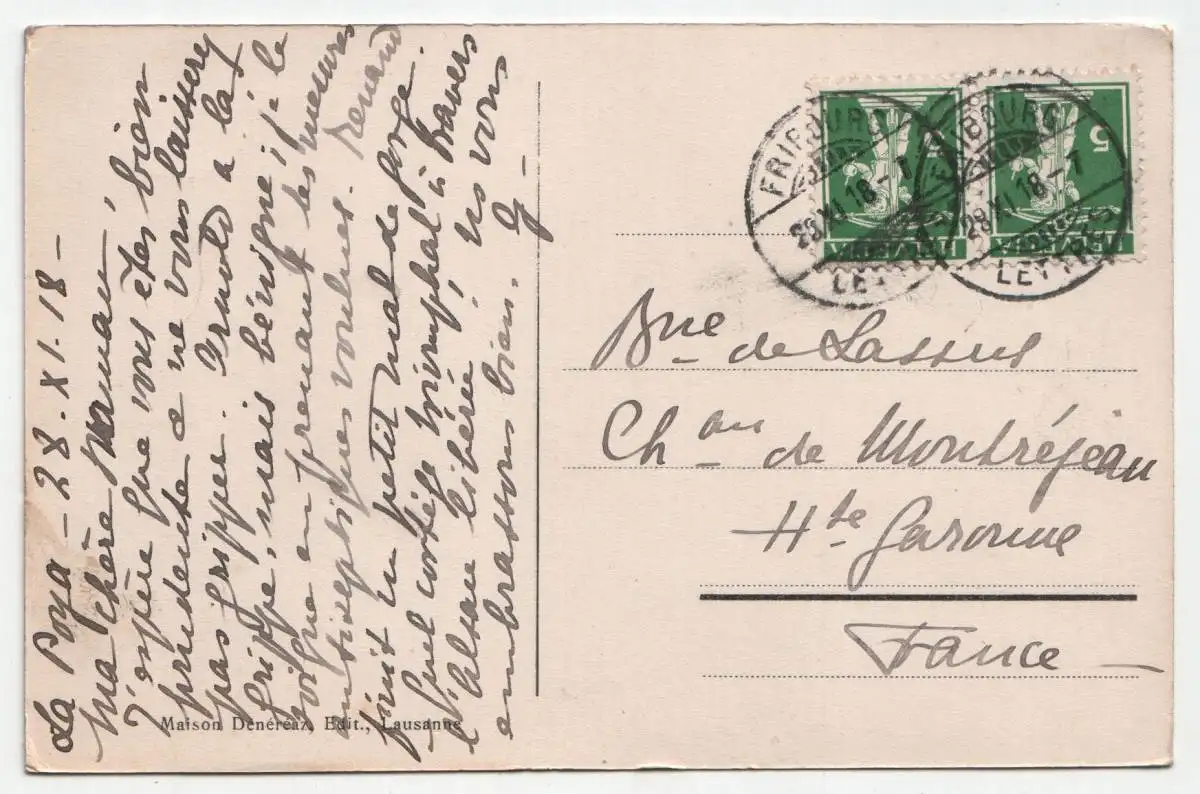 La Poya - 28.XI.18 -
Ma chère Maman,
J'espère que vous êtes bien
prudente à ne vous laisserez
pas gripper. Arnold a la
grippe, mais bénigne ; je le
soigne en prenant les mesures
antiseptiques voulues. Renaud
finit un petit mal de gorge.
Quel cortège triomphal à travers
l'Alsace libérée ! Ns vous
embrassons bien. G-
FRIBOURG
28.XI.18-7
LETTRES
FRIBOURG
28.XI.18-7
LETTRES
5
HELVETIA
5
HELVETIA
Bne de Lassus
Chau de Montréjeau
Hte Garonne
France
Maison Dénéréaz, Edit., Lausanne